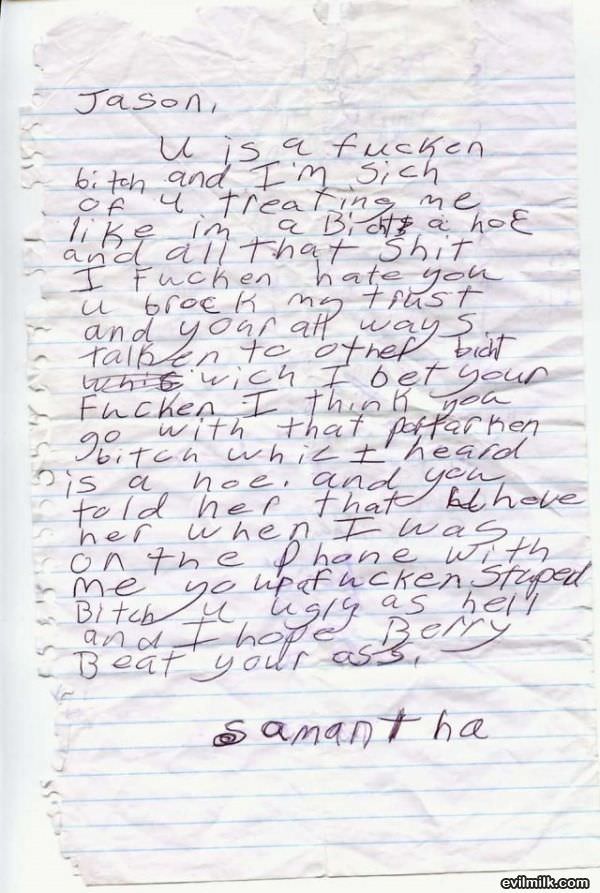 Jason,
U is a fucken
bitch and I'm Sich
of u treating me
like im a a hoE
and all that Shit
I Fucken hate you
u broek my trust
and your all ways
talken to other bicht
wich I bet your
Fucken I think you
go with that
bitch whic I heard
is a hoe. and you
told her that hove
her when I was
on the Phone with
me fucken Stuped
Bitch u ugly as hell
and I hope Berry
Beat your ass.
Samantha
evilmilk.com